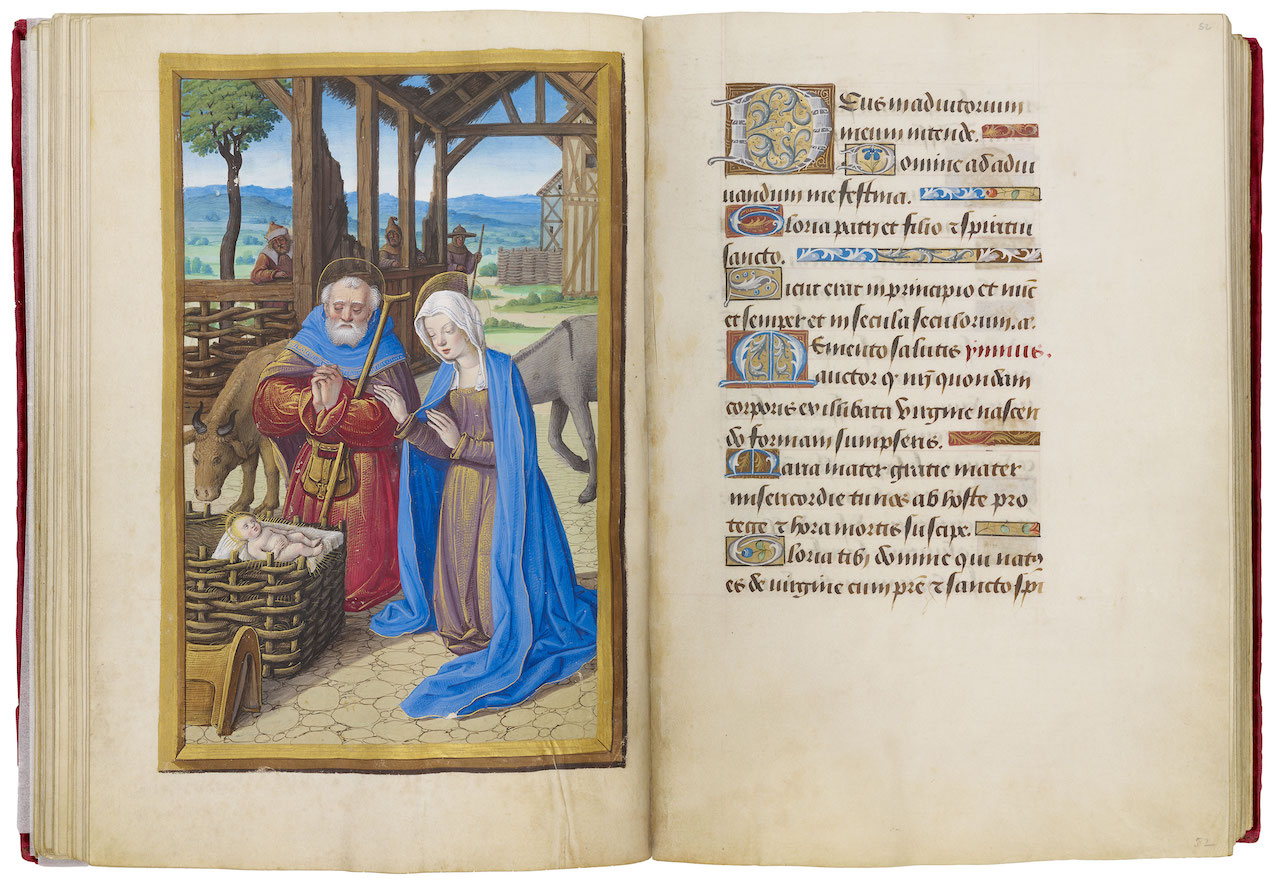 52
Deus in adiutorium
meum intende.
Domine ad adiu
uandum me festina.
Gloria patri et filio ⁊ spiritui
sancto.
Sicut erat in principio et nūc
et semper et in secula seculorum. a.
Memento salutis ymnus.
auctor q̄ nr̄i quondam
corporis ex illibata virgine nascen
do formam sumpseris.
Maria mater gratie mater
misericordie tu nos ab hoste pro
tege ⁊ hora mortis suscipe.
Gloria tibi domine qui natꝰ
es de virgine cum pr̄e ⁊ sancto sp̄i
52